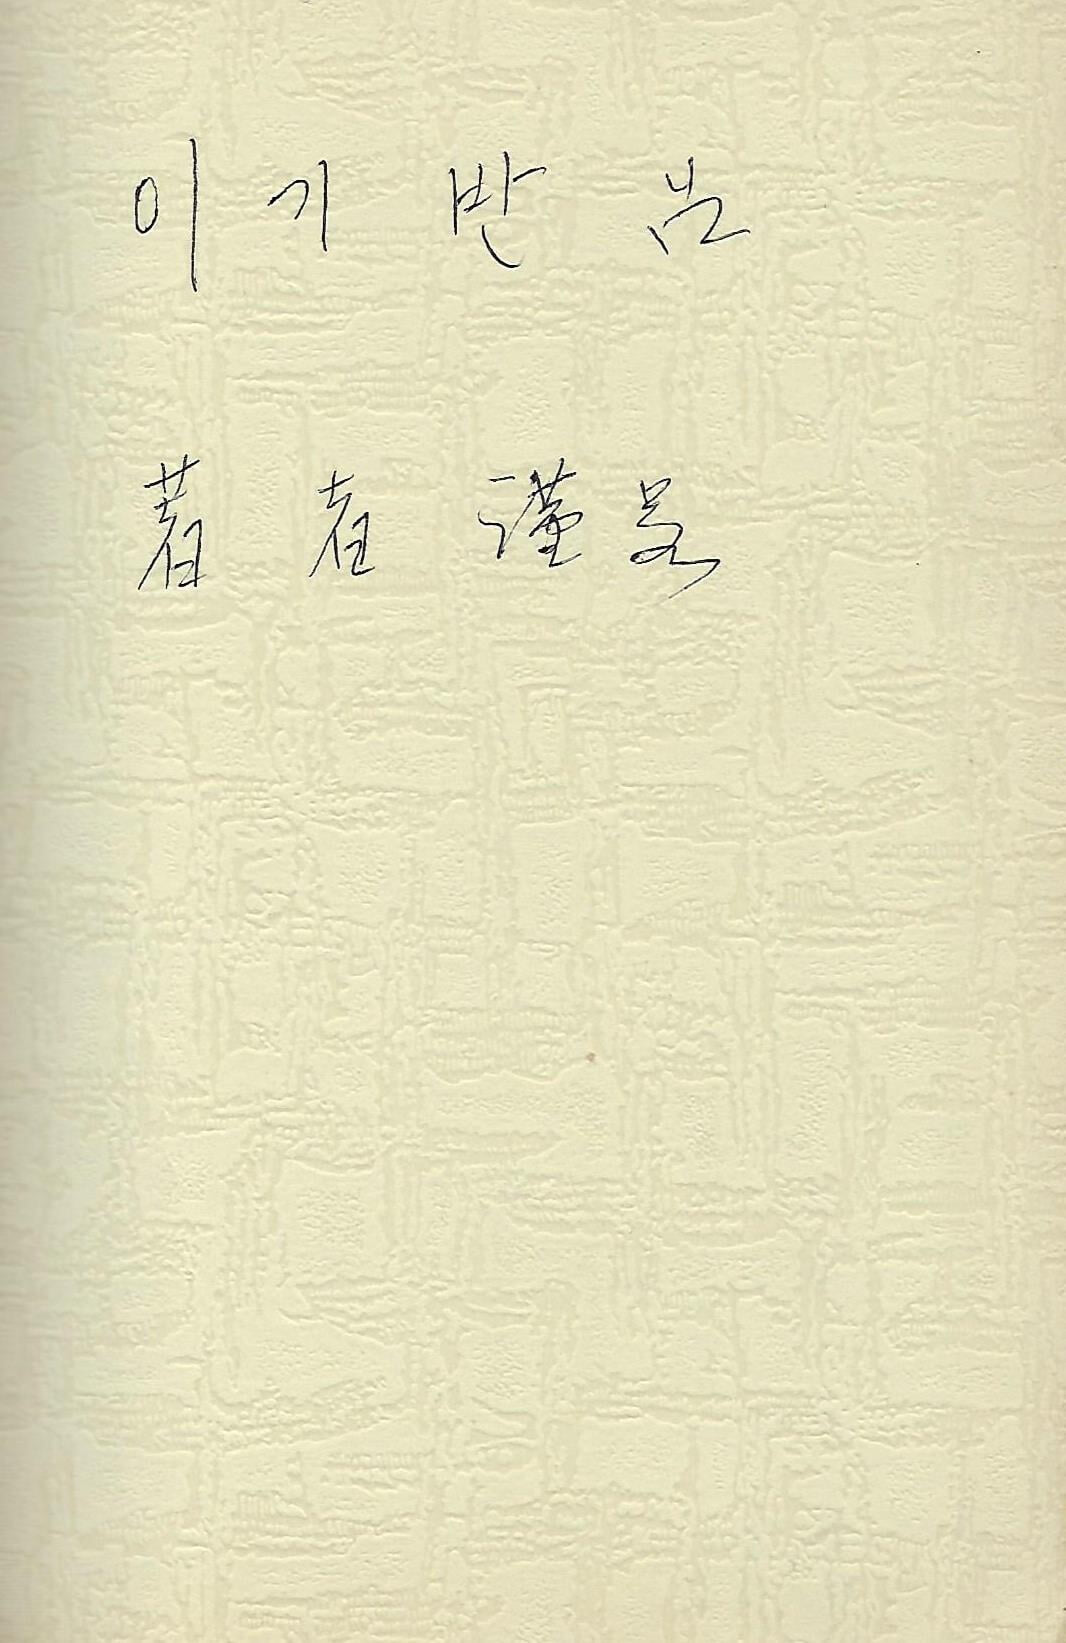 이기반 兄
著者 謹呈